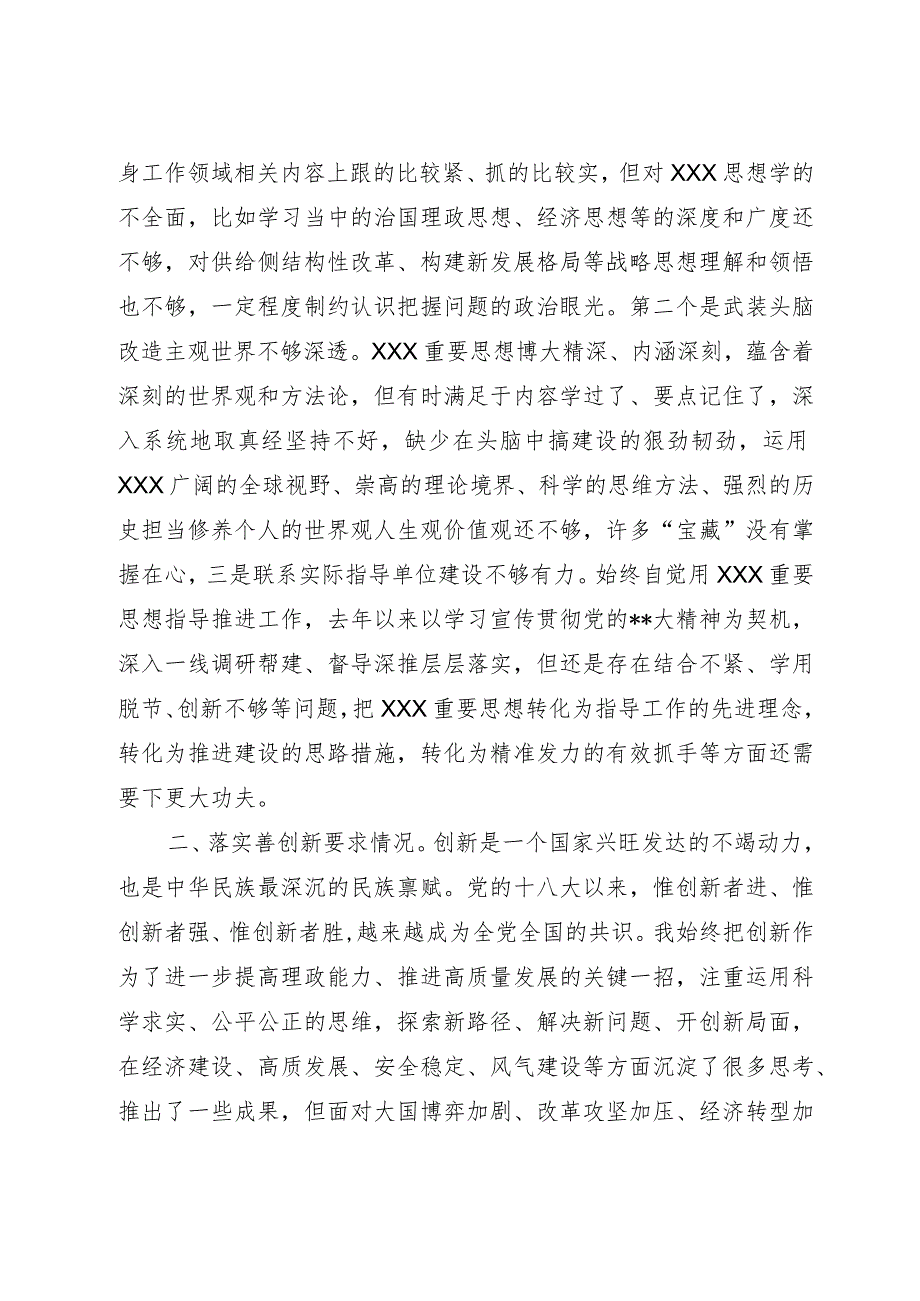 身工作领域相关内容上跟的比较紧、抓的比较实，但对 XXX 思想学的
不全面，比如学习当中的治国理政思想、经济思想等的深度和广度还
不够，对供给侧结构性改革、构建新发展格局等战略思想理解和领悟
也不够，一定程度制约认识把握问题的政治眼光。第二个是武装头脑
改造主观世界不够深透。XXX 重要思想博大精深、内涵深刻，蕴含着
深刻的世界观和方法论，但有时满足于内容学过了、要点记住了，深
入系统地取真经坚持不好，缺少在头脑中搞建设的狠劲韧劲，运用
XXX 广阔的全球视野、崇高的理论境界、科学的思维方法、强烈的历
史担当修养个人的世界观人生观价值观还不够，许多“宝藏”没有掌
握在心，三是联系实际指导单位建设不够有力。始终自觉用 XXX 重要
思想指导推进工作，去年以来以学习宣传贯彻党的**大精神为契机，
深入一线调研帮建、督导深推层层落实，但还是存在结合不紧、学用
脱节、创新不够等问题,把 XXX 重要思想转化为指导工作的先进理念，
转化为推进建设的思路措施，转化为精准发力的有效抓手等方面还需
要下更大功夫。
二、落实善创新要求情况。创新是一个国家兴旺发达的不竭动力，
也是中华民族最深沉的民族禀赋。党的十八大以来，惟创新者进、惟
创新者强、惟创新者胜,越来越成为全党全国的共识。我始终把创新作
为了进一步提高理政能力、推进高质量发展的关键一招，注重运用科
学求实、公平公正的思维，探索新路径、解决新问题、开创新局面，
在经济建设、高质发展、安全稳定、风气建设等方面沉淀了很多思考、
推出了一些成果，但面对大国博弈加剧、改革攻坚加压、经济转型加